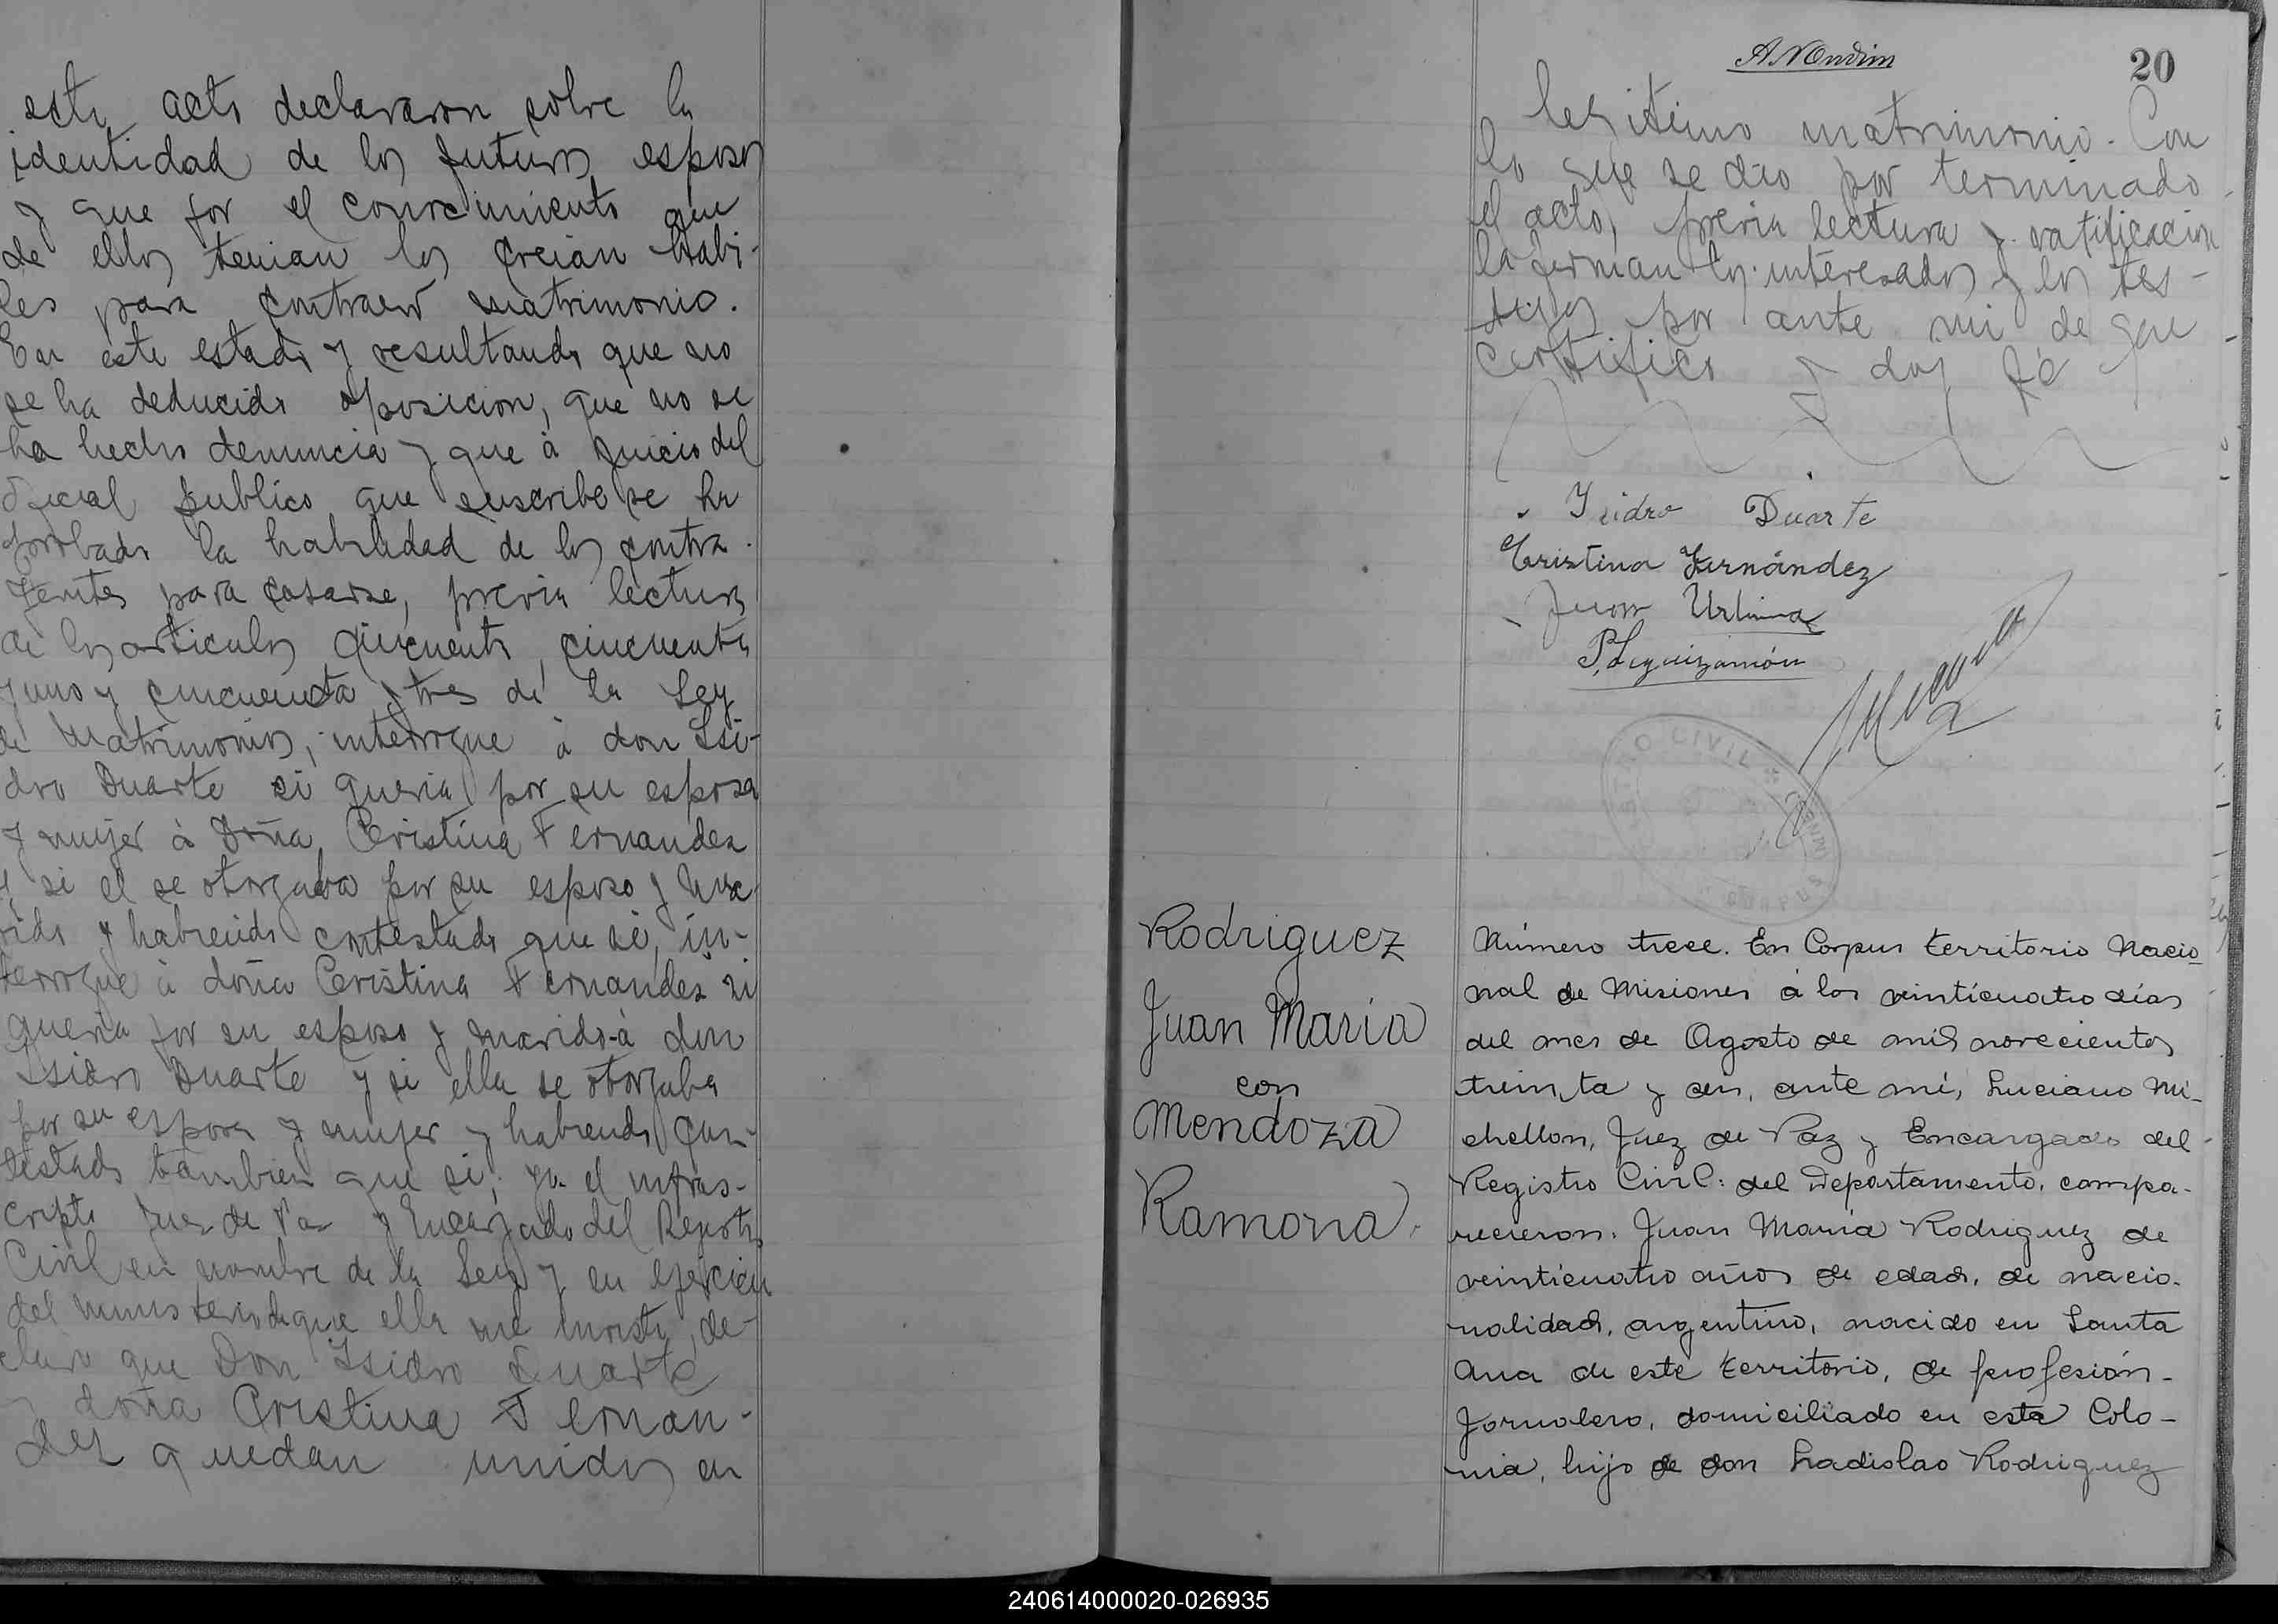 este acto declararon sobre la
identidad de los futuros esposos
y que por el conocimiento que
de ellos tenian los creian habi-
les para contraer matrimonio.
En este estado y resultando que no
se ha deducido oposicion, que no se
ha hecho denuncia y que á juicio del
oficial publico que suscribe se ha
probado la habilidad de los contra-
yentes para casarse, previa lectura
de los articulos cincuenta, cincuenta
y uno y cincuenta y tres de la Ley
de Matrimonios, interrogue á don Isi-
dro Duarte si queria por su esposa
y mujer á Doña Cristina Fernandez
y si el se otorgaba por su esposo y ma
rido y habiendo contestado que si, in-
terrogue á doña Cristina Fernandez si
queria por su esposo y marido á don
Isidro Duarte y si ella se otorgaba
por su esposa y mujer y habiendo con-
testado tambien que si, yo el infras-
cripto Juez de Paz y Encargado del Registro
Civil en nombre de la Ley y en ejercicio
del ministerio de que ella me inviste, de-
claro que Don Isidro Duarte
y doña Cristina Fernan-
dez quedan unidos en
20
legitimo matrimonio. Con
lo que se dio por terminado
el acto, previa lectura y ratificacion
la firman los interesados y los tes-
tigos por ante mi de que
certifico y doy fé
Isidro Duarte
Cristina Fernández
Juan Urbina
P. Leguizamón
REGISTRO CIVIL
Rodriguez
Juan María
con
Mendoza
Ramona.
Número trece. En Corpus territorio Nacio
nal de Misiones á los veinticuatro días
del mes de Agosto de mil novecientos
treinta y seis, ante mí, Luciano Mi-
chellon, Juez de Paz y Encargado del
Registro Civil: del Departamento, compa-
recieron. Juan María Rodriguez de
veinticuatro años de edad, de nacio-
nalidad, argentino, nacido en Santa
Ana de este territorio, de profesión-
Jornalero, domiciliado en esta Colo-
nia, hijo de don Ladislao Rodriguez
240614000020-026935